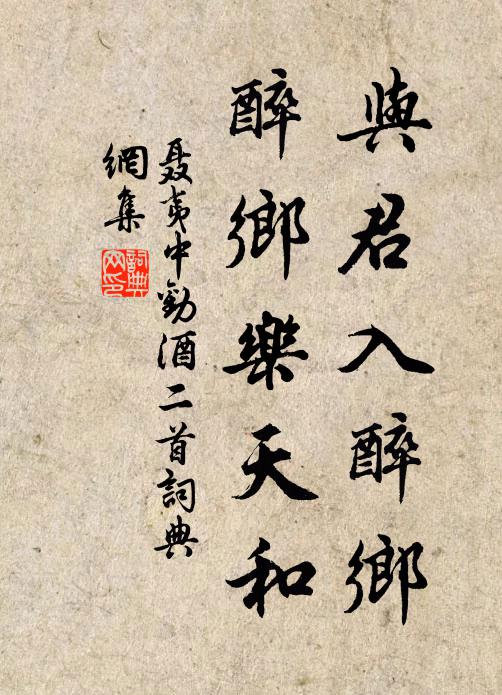 與君入醉鄉
醉鄉樂天和
聶夷中勸酒二首詞典
網集
詞典
网印